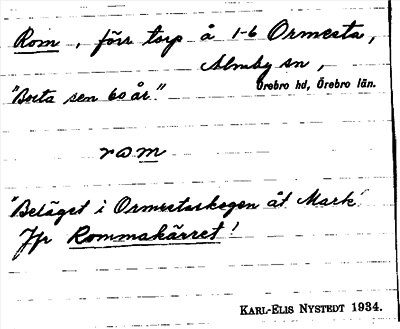 Rom, förr torp å 1-6 Ormesta,
Almby sn,
Örebro hd, Örebro län.
"Borta sen 60 år."
rom
"Beläget i Ormestaskogen åt Mark"
Jfr Rommakärret!
KARL-ELIS NYSTEDT 1934.